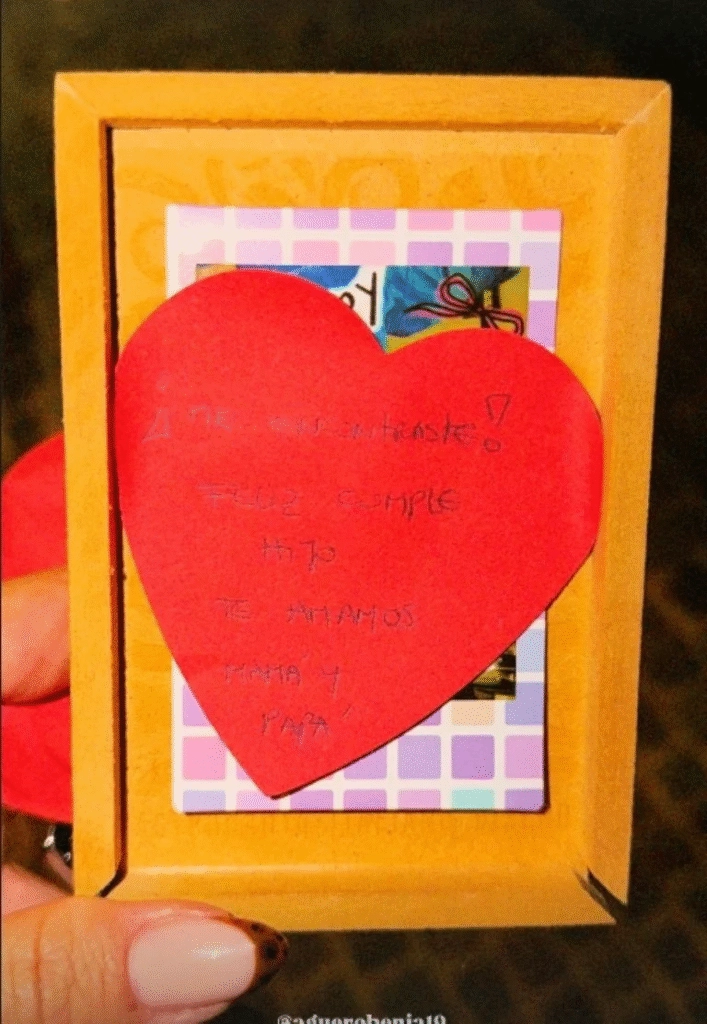 ¡ ME ENCONTRASTE!
FELIZ CUMPLE
HIJO
TE AMAMOS
MAMÁ Y
PAPÁ